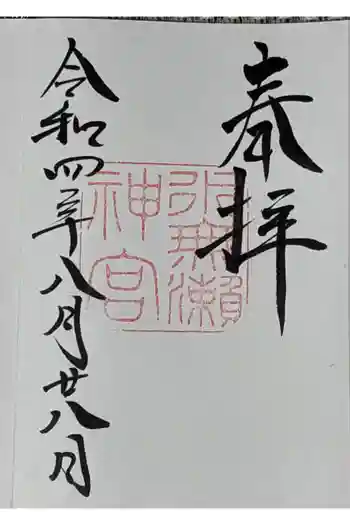 奉拝
水無瀬
神宮
令和四年八月廿八日